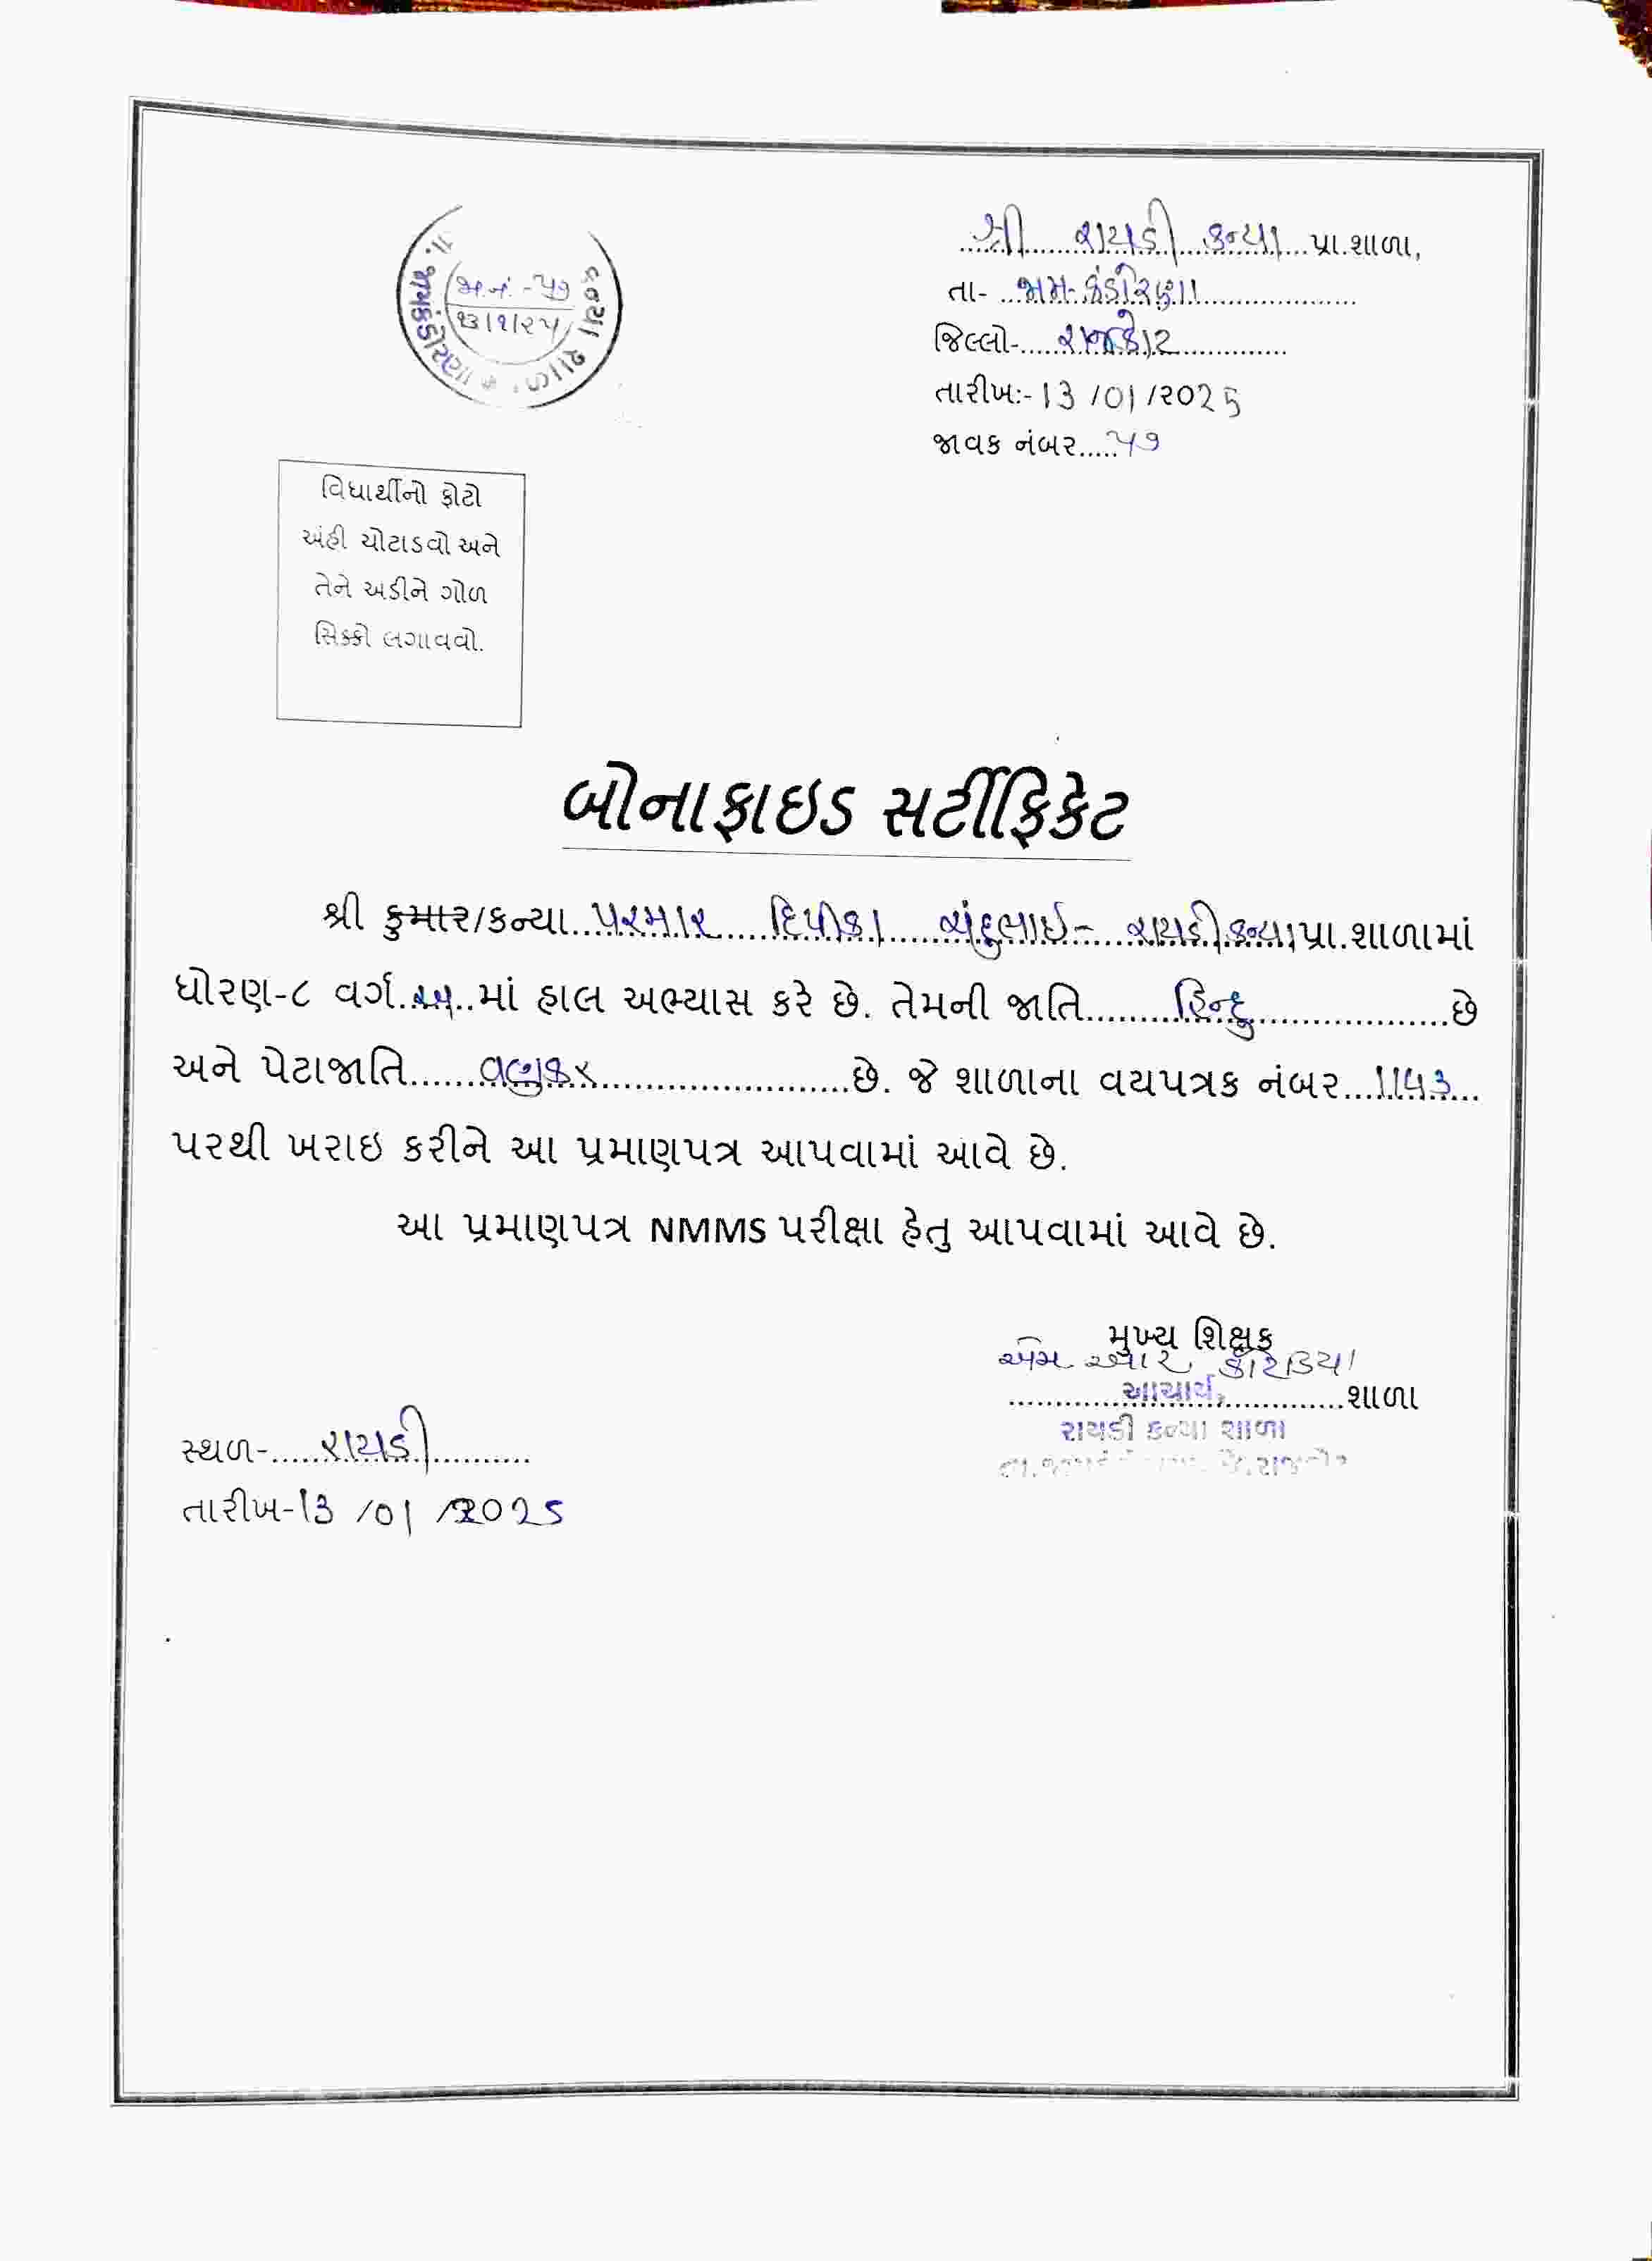 શ્રી રાયડી કન્યા પ્રા.શાળા,
તા- જામ-કંડોરણા
જિલ્લો- રાજકોટ
તારીખ:- 13 /01 /૨૦25
જાવક નંબર.....૫૭
તા. જામકંડોરણા * કન્યા શાળા
જા.નં. - ૫૭
૧૩/૧/૨૫
વિધાર્થીનો ફોટો
અંહી ચોટાડવો અને
તેને અડીને ગોળ
સિક્કો લગાવવો.
બોનાફાઇડ સર્ટીફિકેટ
શ્રી કુમાર/કન્યા પરમાર દિપીકા ચંદુભાઇ - રાયડી કન્યા પ્રા.શાળામાં
ધોરણ-૮ વર્ગ માં હાલ અભ્યાસ કરે છે. તેમની જાતિ હિન્દુ છે
અને પેટાજાતિ વણકર છે. જે શાળાના વયપત્રક નંબર 1153
પરથી ખરાઇ કરીને આ પ્રમાણપત્ર આપવામાં આવે છે.
આ પ્રમાણપત્ર NMMS પરીક્ષા હેતુ આપવામાં આવે છે.
મુખ્ય શિક્ષક
એમ આર કોરડિયા
આચાર્ય, શાળા
રાયડી કન્યા શાળા
સ્થળ- રાયડી
તારીખ-13 /01 /૨025